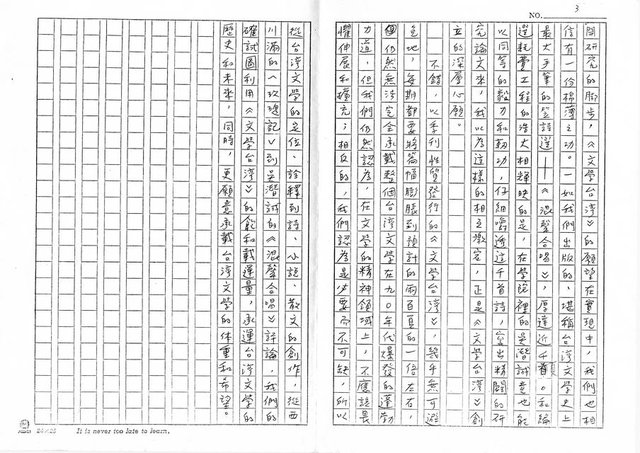 NO. 3
開研究的腳步,《文學台灣》的願望在實現中,我們也相
信有一份棉薄之功。一如我們出版的,堪稱台灣文學史上
最大手筆的詩選——《混聲合唱》,厚達近千頁,和編
選耗費工程的浩大相輝映的是,在學院裡的吳潛誠竟也能
以同等的毅力和勁功,仔細嚼透這千首詩,寫出精闢的研
究論文來,我以為這樣的相互激發,正是《文學台灣》創
立的深層心願。
不錯,以季刊性質發行的《文學台灣》,幾乎無可避
免地,每期都要將篇幅膨脹到預計的兩百頁的一倍左右,
仍然無法完全承載整個台灣文學在九○年代爆發的蓬勃
力道,但我們仍然認為,在文學的精神領域上,不應該畏
懼伸展和擴充;相反的,我們認為是必要而不可缺,所以
從台灣文學的定位、詮釋到詩、小說、散文的創作,從西
川滿的《玫瑰記》到吳潛誠的《混聲合唱》評論,我們的
確試圖利用《文學台灣》的能和載運量,承運台灣文學的
歷史和未來,同時,更願意承載台灣文學的体重和希望。
24×25 It is never too late to learn.